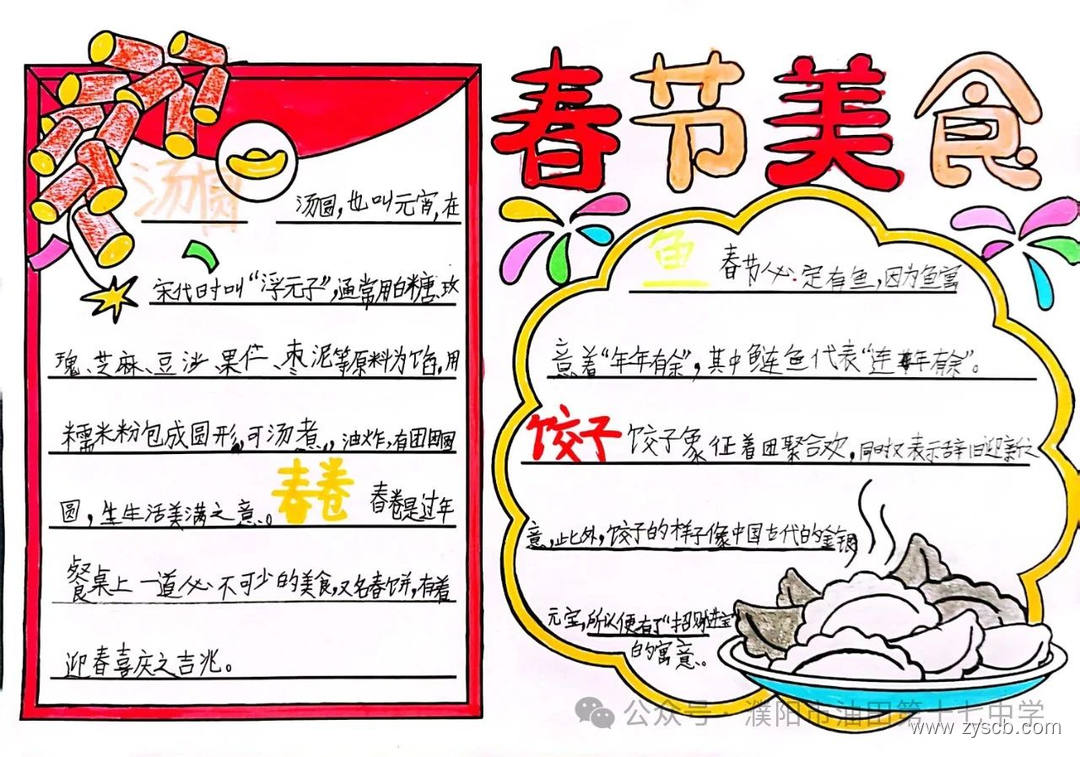 春节美食
汤圆
汤圆，也叫元宵，在
宋代时叫“浮元子”，通常用白糖、玫
瑰、芝麻、豆沙、果仁、枣泥等原料为馅，用
糯米粉包成圆形，可汤煮、油炸，有团团圆
圆，生活美满之意。
春卷
春卷是过年
餐桌上一道必不可少的美食，又名春饼，有着
迎春喜庆之吉兆。
鱼
春节必定有鱼，因为鱼寓
意着“年年有余”，其中鲢鱼代表“连年有余”。
饺子
饺子象征着团聚合欢，同时又表示辞旧迎新之
意，此外，饺子的样子像中国古代的金银
元宝，所以便有了“招财进宝”
的寓意。
公众号·濮阳市油田第十七中学
www.zyscb.com